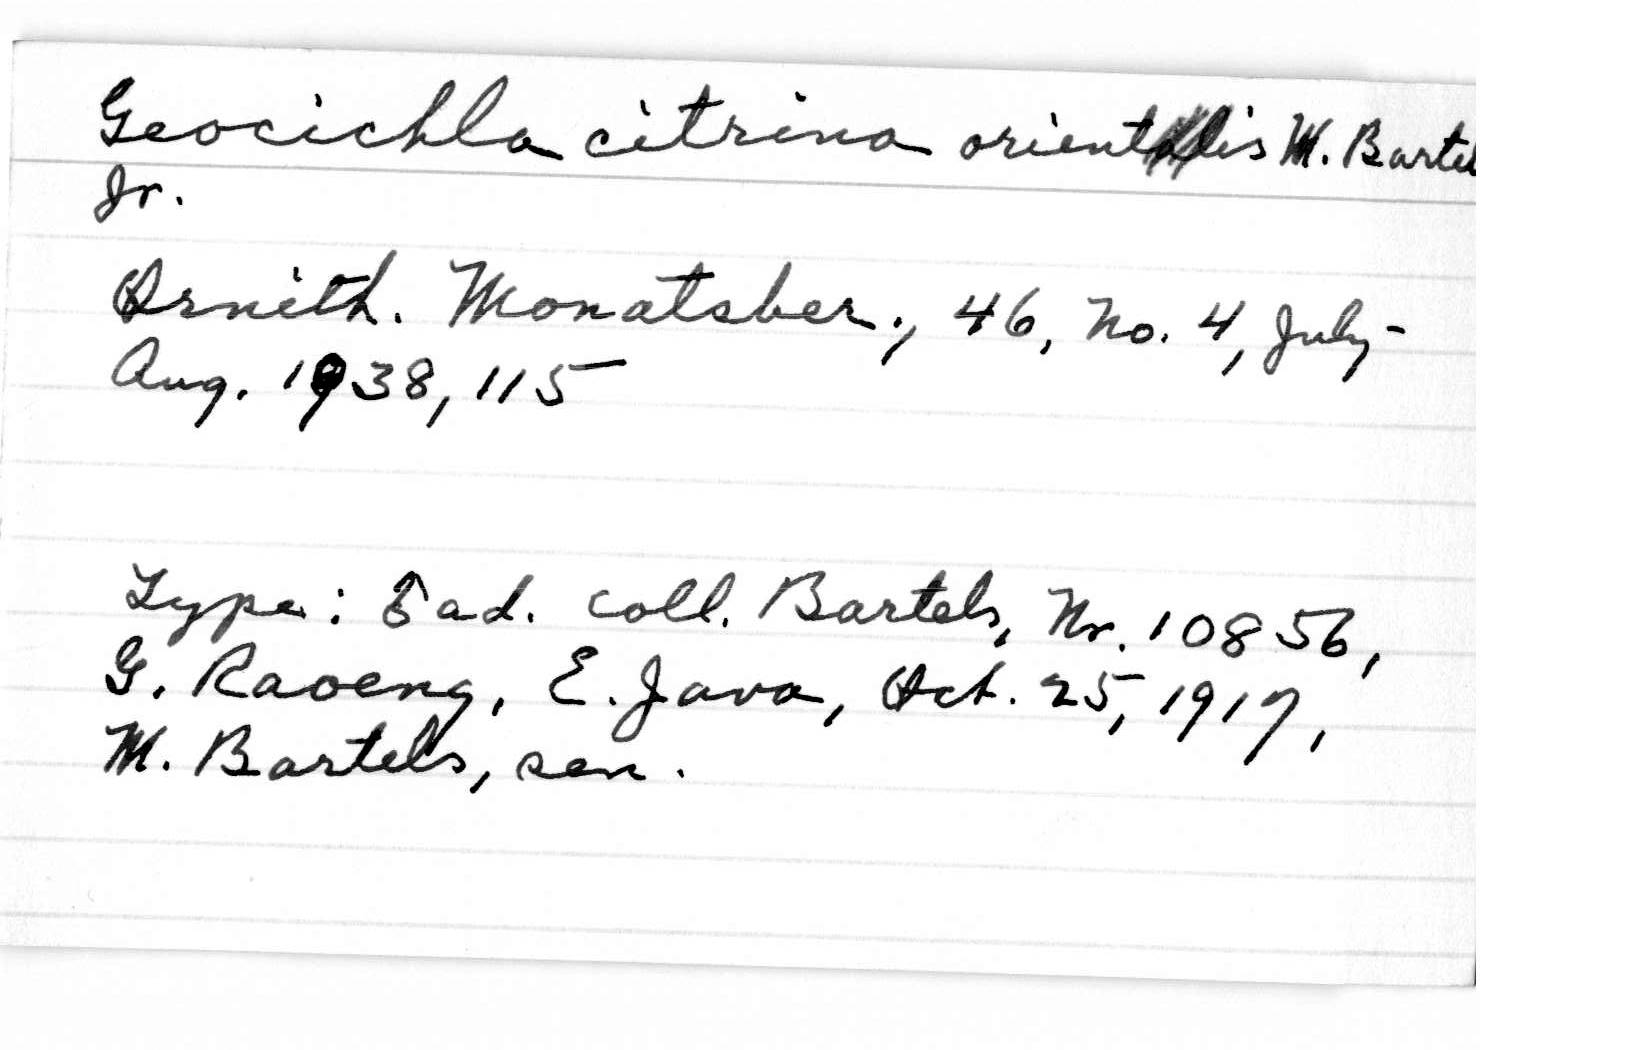 Geocichla citrina orientalis M. Bartel
Jr.
Ornith. Monatsber., 46, No. 4, July-
Aug. 1938, 115
Type: ♂ ad. coll. Bartels, Nr. 10856,
G. Raoeng, E. Java, Oct. 25, 1917,
M. Bartels, sen.